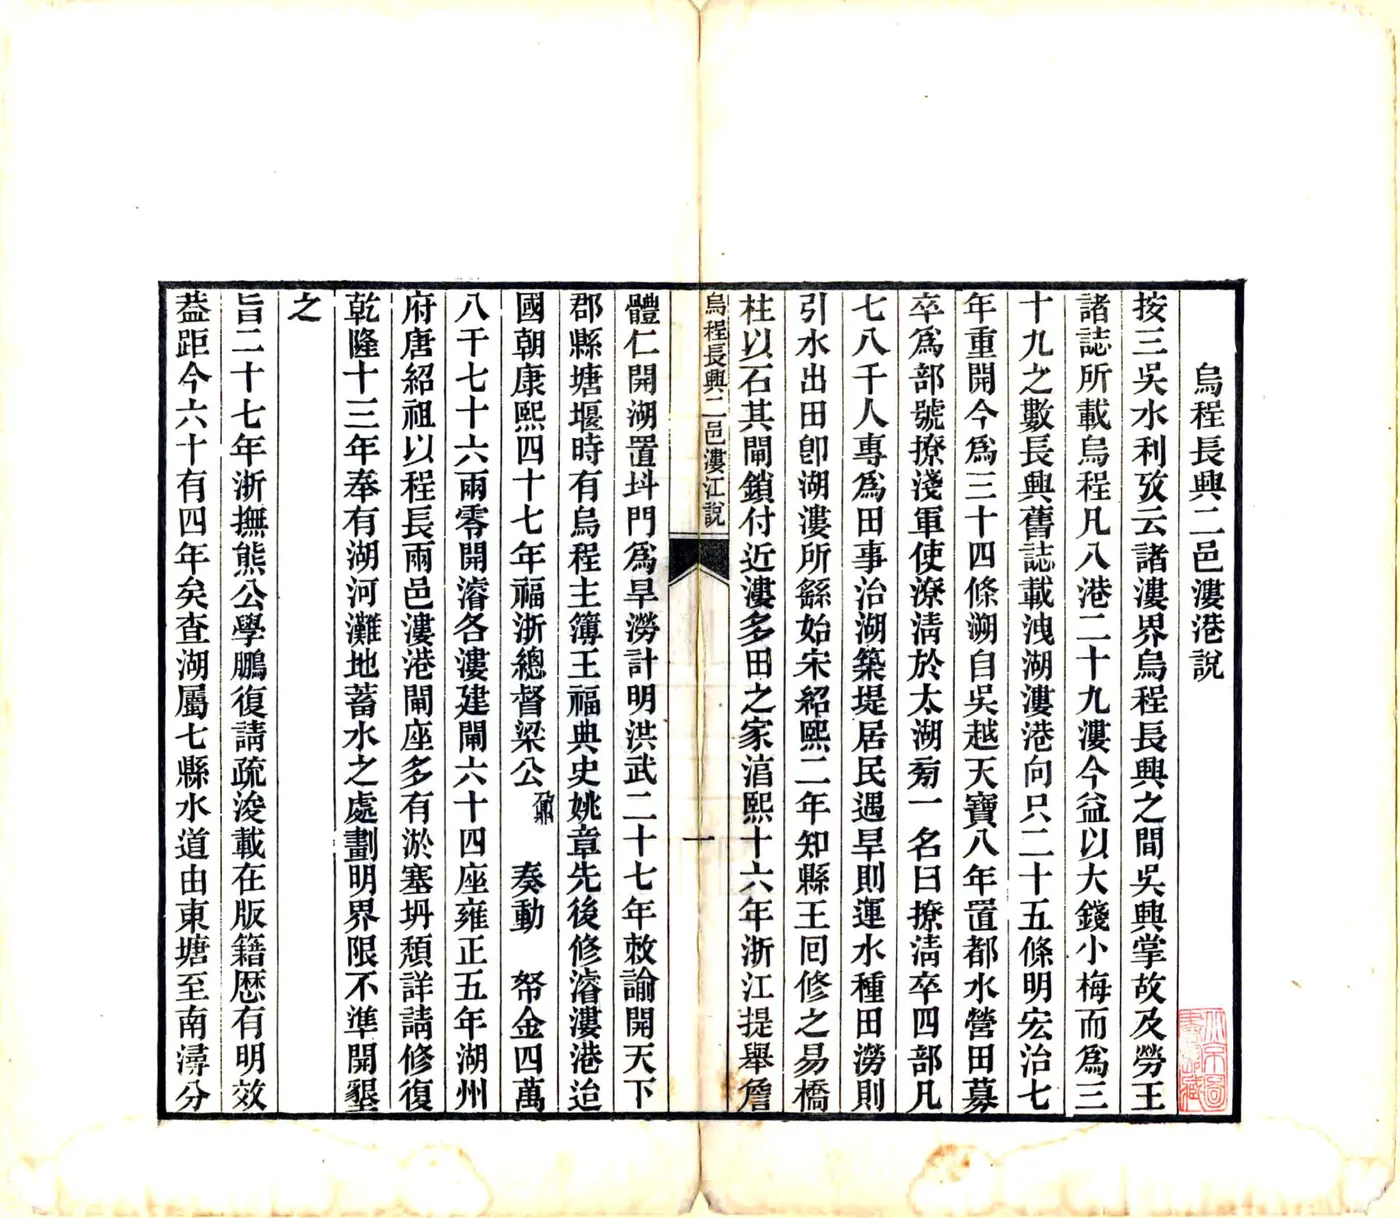 烏程長興二邑漊港說
按三吳水利攷云諸漊界烏程長興之間吳興掌故及勞王
諸誌所載烏程凡八港二十九漊今益以大錢小梅而爲三
十九之數長興舊誌載洩湖漊港向只二十五條明宏治七
年重開今爲三十四條溯自吳越天寶八年置都水營田募
卒爲部號撩淺軍使潦淸於太湖菊一名曰撩淸卒四部凡
七八千人專爲田事治湖築堤居民遇旱則運水種田澇則
引水出田卽湖漊所繇始宋紹熙二年知縣王囘修之易橋
柱以石其閘鎖付近漊多田之家淯熙十六年浙江提舉詹
烏程長興二邑漊江說
一
體仁開湖置抖門爲旱澇計明洪武二十七年敕諭開天下
郡縣塘堰時有烏程主簿王福典史姚章先後修濬漊港迨
國朝康熙四十七年福浙總督梁公鼐 奏動 帑金四萬
八千七十六兩零開濬各漊建閘六十四座雍正五年湖州
府唐紹祖以程長兩邑漊港閘座多有淤塞坍頹詳請修復
乾隆十三年奉有湖河灘地蓄水之處劃明界限不準開墾
之
旨二十七年浙撫熊公學鵬復請疏浚載在版籍厯有明效
葢距今六十有四年矣查湖屬七縣水道由東塘至南潯分